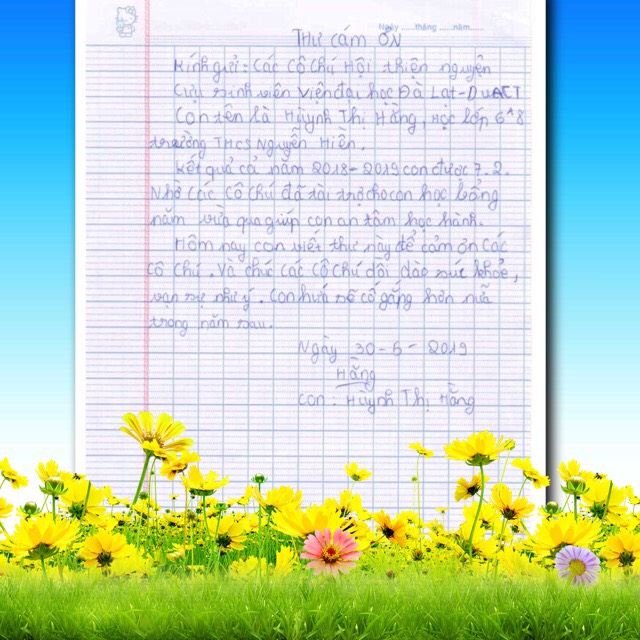 Ngày ......tháng ......năm......
THƯ CÁM ƠN
Kính gửi: Các Cô Chú Hội thiện nguyện
Cựu sinh viên Viện đại học Đà Lạt - DUACT
Con tên là Huỳnh Thị Hằng, Học lớp 6^8
trường THCS Nguyễn Hiền.
Kết quả cả năm 2018-2019 con được 7.2.
Nhờ các cô chú đã tài trợ cho con học bổng
năm vừa qua giúp con an tâm học hành.
Hôm nay con viết thư này để cảm ơn các
cô chú. Và chúc các cô chú dồi dào sức khoẻ,
vạn sự như ý. Con hứa sẽ cố gắng hơn nữa
trong năm sau.
Ngày 30-6-2019
Hằng
Con: Huỳnh Thị Hằng